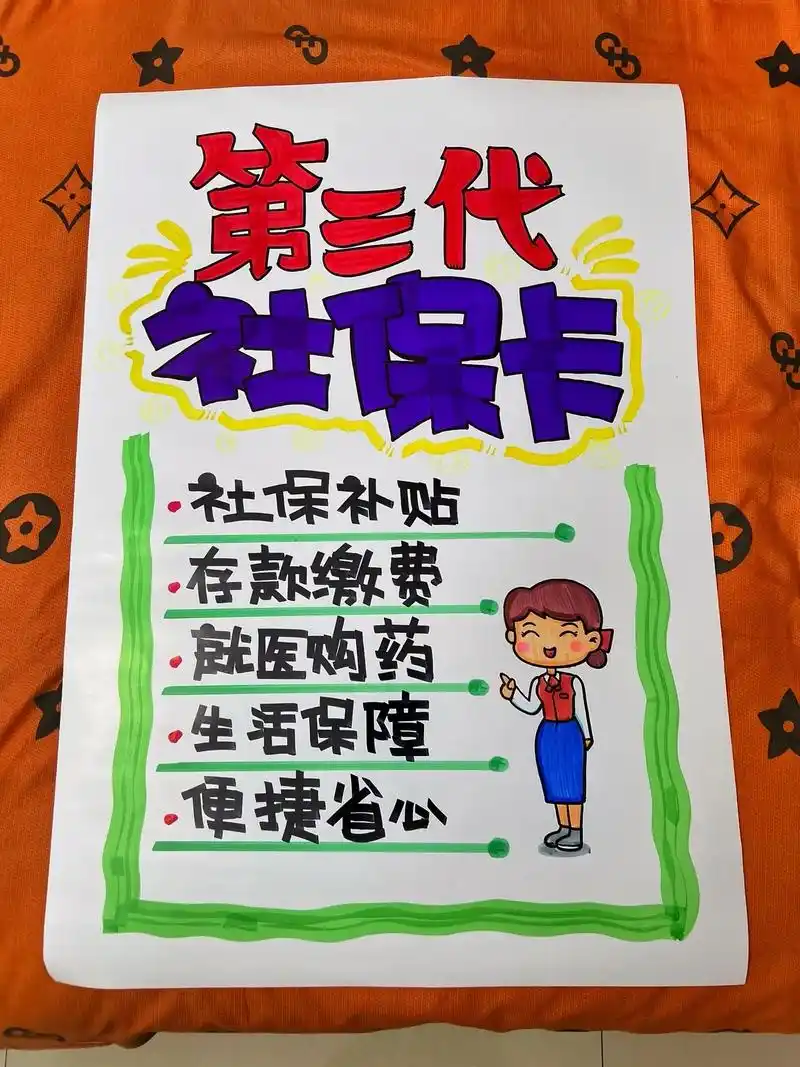 第三代
社保卡
社保补贴
存款缴费
就医购药
生活保障
便捷省心